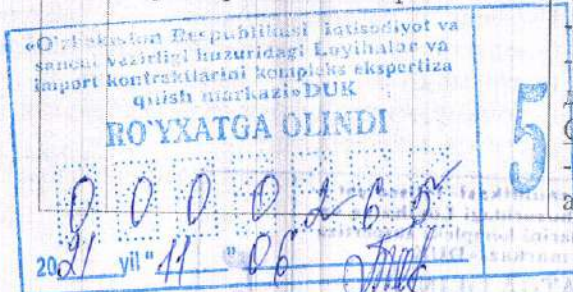 «O'zbekiston Respublikasi Iqtisodiyot va
sanoat vazirligi huzuridagi Loyihalar va
import kontraktlarini kompleks ekspertiza
qilish markazi» DUK
RO'YXATGA OLINDI
0 0 0 0 2 6 5
2021 yil "11" 06
5